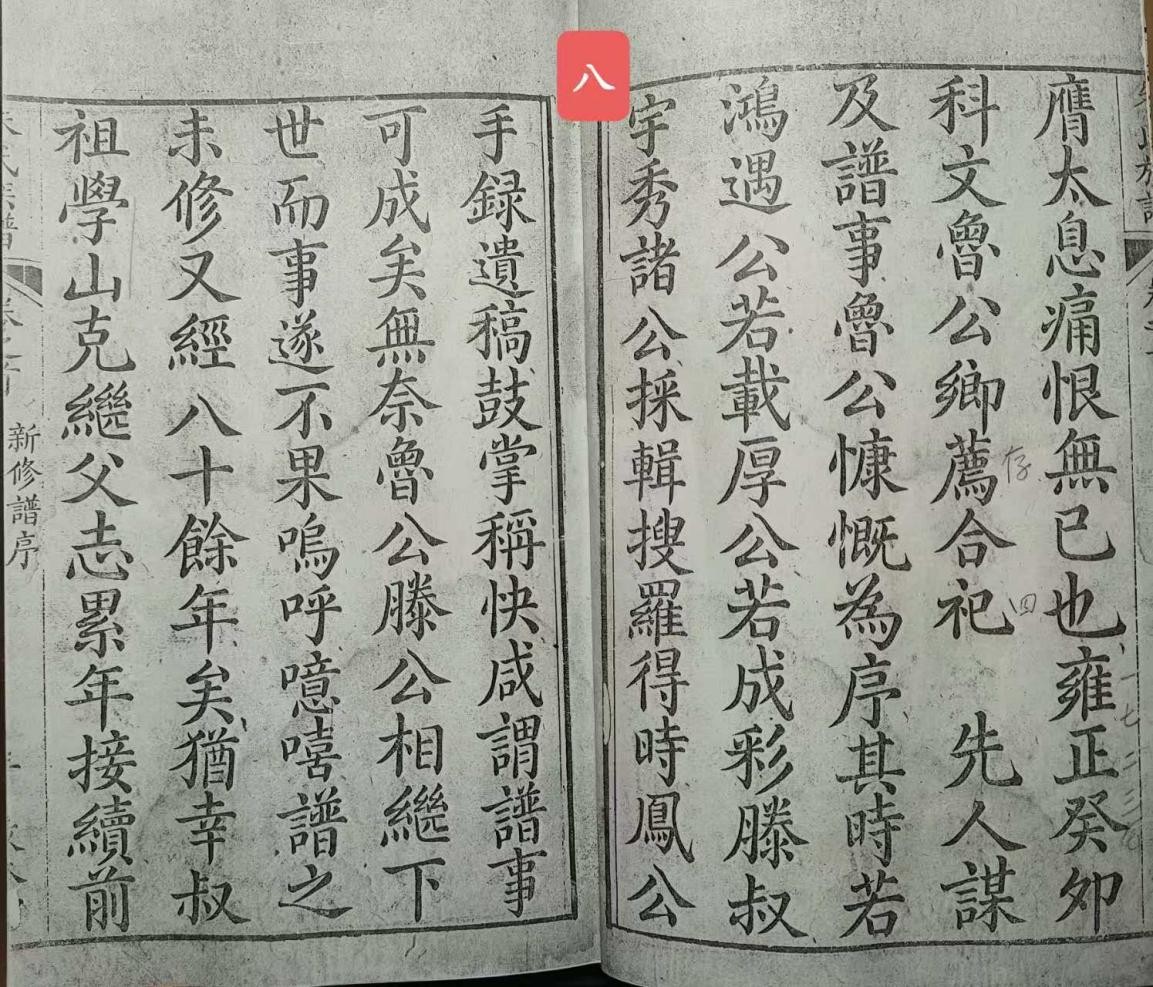 八
膺太息痛恨無已也雍正癸卯
科文魯公鄉薦合祀 先人謀
及譜事魯公慷慨為序其時若
鴻遇公若載厚公若成彩滕叔
宇秀諸公採輯搜羅得時鳳公
手録遺稿鼓掌稱快咸謂譜事
可成矣無奈魯公滕公相繼下
世而事遂不果嗚呼噫嘻譜之
未修又經八十餘年矣猶幸叔
祖學山克繼父志累年接續前
新修譜序
存
四